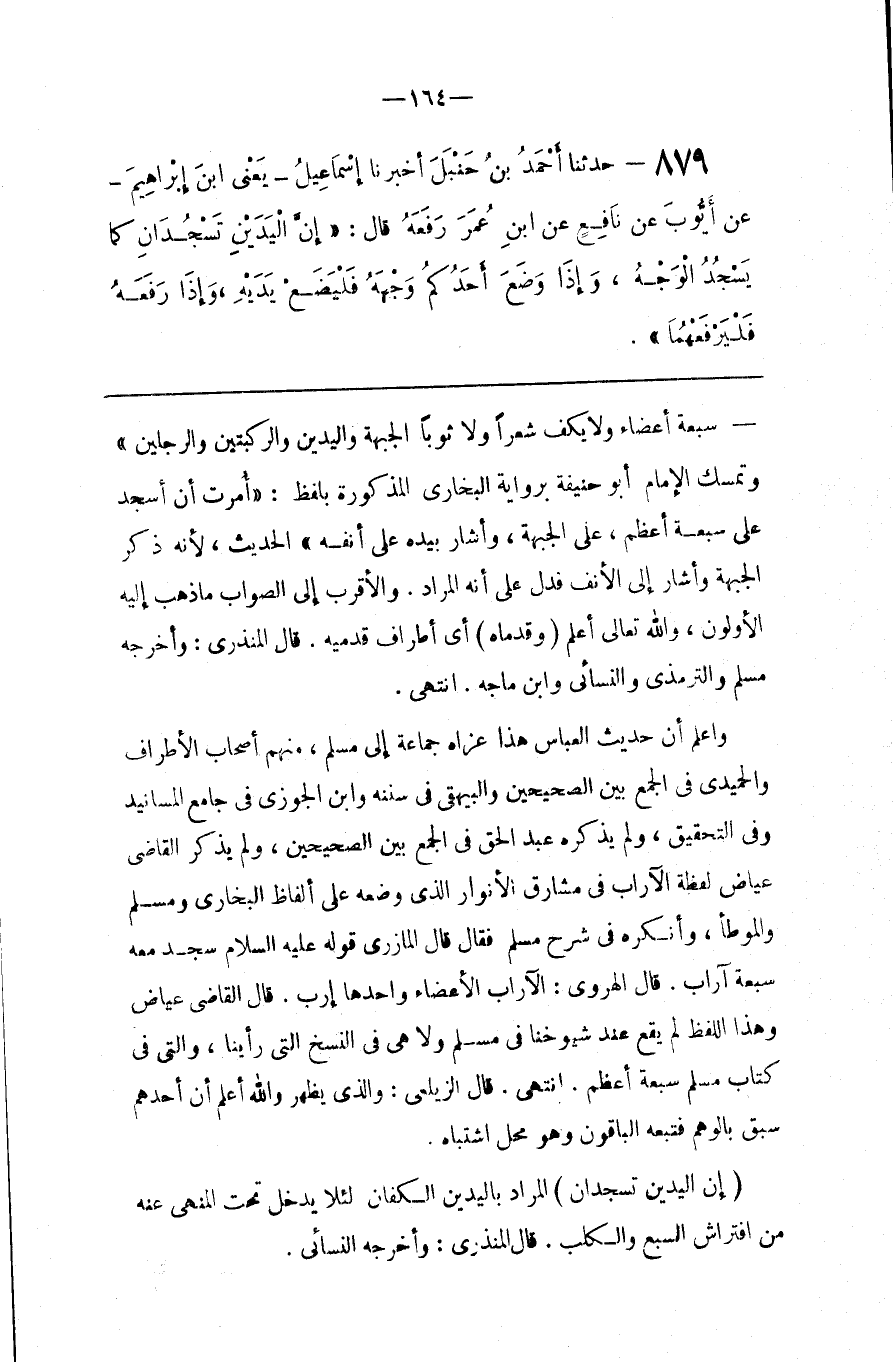 —١٦٤—
٨٧٩ — حدثنا أَحْمَدُ بنُ حَنْبَلَ أخبرنا إِسْمَاعِيلُ – يَعْنى ابنَ إِبْرَاهِيمَ –
عن أَيُّوبَ عن نَافِعٍ عن ابنِ عُمَرَ رَفَعَهُ قال : « إِنَّ الْيَدَيْنِ تَسْجُدَانِ كما
يَسْجُدُ الْوَجْهُ ، وَإِذَا وَضَعَ أَحَدُكُم وَجْهَهُ فَلْيَضَعْ يَدَيْهِ ، وَإِذَا رَفَعَهُ
فَلْيَرْفَعْهُمَا » .
— سبعة أعضاء ولا يكف شعراً ولا ثوباً الجبهة واليدين والركبتين والرجلين »
وتمسك الإمام أبو حنيفة برواية البخارى المذكورة بلفظ : «أُمرت أن أسجد
على سبعة أعظم ، على الجبهة ، وأشار بيده على أنفه » الحديث ، لأنه ذكر
الجبهة وأشار إلى الأنف فدل على أنه المراد . والأقرب إلى الصواب ماذهب إليه
الأولون ، والله تعالى أعلم ( وقدماه ) أى أطراف قدميه . قال المنذرى : وأخرجه
مسلم والترمذى والنسائى وابن ماجه . انتهى .
واعلم أن حديث العباس هذا عزاه جماعة إلى مسلم ، منهم أصحاب الأطراف
والحميدى فى الجمع بين الصحيحين والبيهقى فى سننه وابن الجوزى فى جامع المسانيد
وفى التحقيق ، ولم يذكره عبد الحق فى الجمع بين الصحيحين ، ولم يذكر القاضى
عياض لفظة الآراب فى مشارق الأنوار الذى وضعه على ألفاظ البخارى ومسلم
والموطأ ، وأنكره فى شرح مسلم فقال قال المازرى قوله عليه السلام سجد معه
سبعة آراب . قال الهروى : الآراب الأعضاء واحدها إرب . قال القاضى عياض
وهذا اللفظ لم يقع عند شيوخنا فى مسلم ولا هى فى النسخ التى رأينا ، والتى فى
كتاب مسلم سبعة أعظم . انتهى . قال الزيلعى : والذى يظهر والله أعلم أن أحدهم
سبق بالوهم فتبعه الباقون وهو محل اشتباه .
( إن اليدين تسجدان ) المراد باليدين الكفان لئلا يدخل تحت المنهى عنه
من افتراش السبع والكلب . قال المنذرى : وأخرجه النسائى .